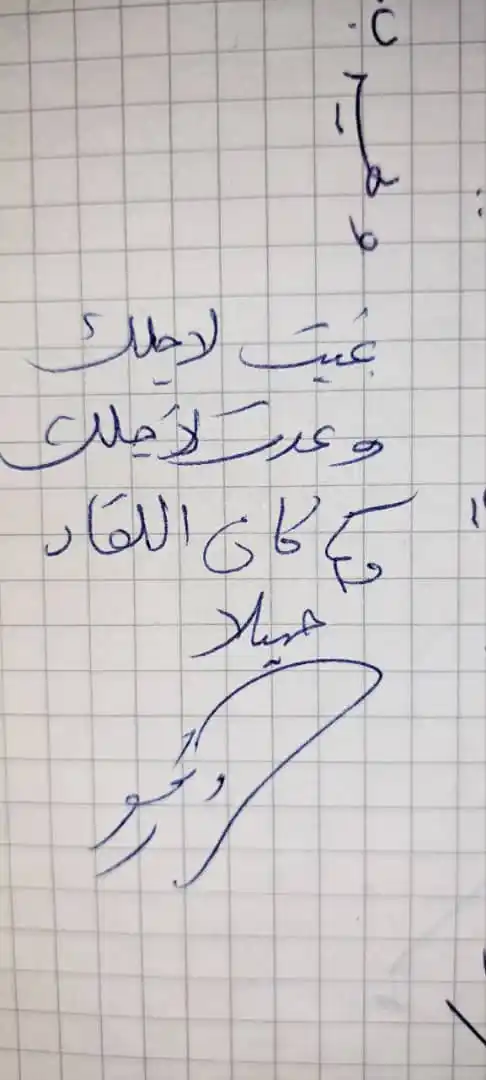 C
1
a
b
غبت لاجلك
وعدت لأجلك
وكم كان اللقاء
جميلا